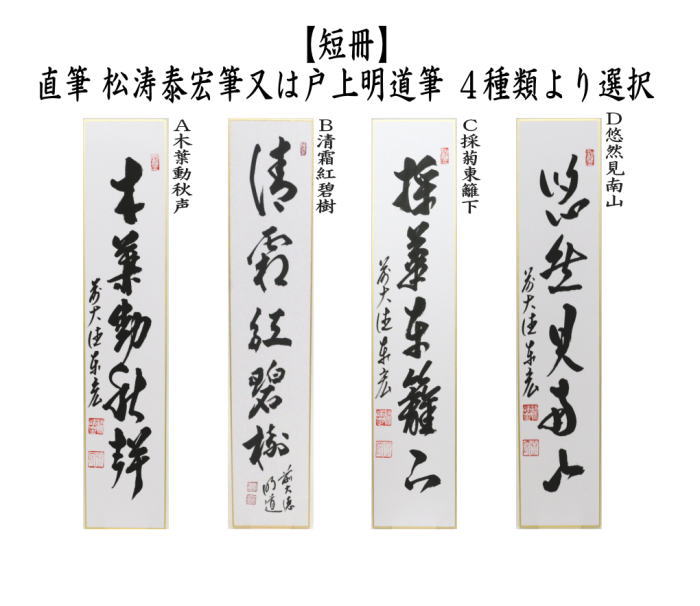 【短冊】
直筆 松涛泰宏筆又は戸上明道筆 4種類より選択
A木葉動秋声
木葉動秋聲
前大徳泰宏
B清霜紅碧樹
清霜紅碧樹
前大徳
明道
C採菊東籬下
採菊東籬下
前大徳泰宏
D悠然見南山
悠然見南山
前大徳泰宏